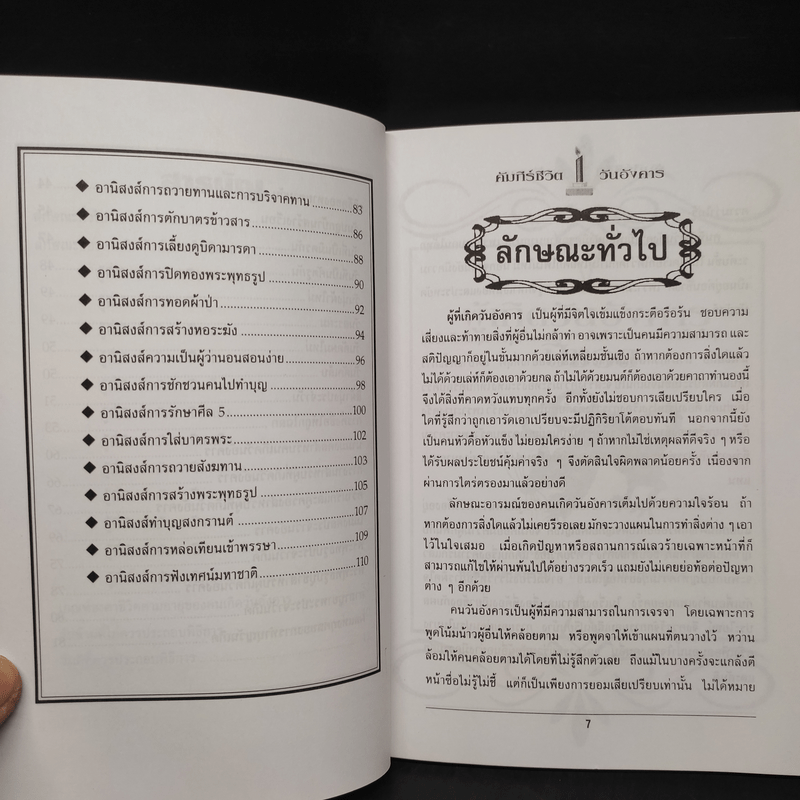 ◆ อานิสงส์การถวายทานและการบริจาคทาน ............83
◆ อานิสงส์การตักบาตรข้าวสาร ............86
◆ อานิสงส์การเลี้ยงดูบิดามารดา ............88
◆ อานิสงส์การปิดทองพระพุทธรูป ............90
◆ อานิสงส์การทอดผ้าป่า ............92
◆ อานิสงส์การสร้างหอระฆัง ............94
◆ อานิสงส์ความเป็นผู้ว่านอนสอนง่าย ............96
◆ อานิสงส์การชักชวนคนไปทำบุญ ............98
◆ อานิสงส์การรักษาศีล 5 ............100
◆ อานิสงส์การใส่บาตรพระ ............102
◆ อานิสงส์การถวายสังฆทาน ............103
◆ อานิสงส์การสร้างพระพุทธรูป ............105
◆ อานิสงส์ทำบุญสงกรานต์ ............107
◆ อานิสงส์การหล่อเทียนเข้าพรรษา ............109
◆ อานิสงส์การฟังเทศน์มหาชาติ ............110
คัมภีร์ชีวิต วันอังคาร
ลักษณะทั่วไป
ผู้ที่เกิดวันอังคาร เป็นผู้ที่มีจิตใจเข้มแข็งกระตือรือร้น ชอบความ
เสี่ยงและท้าทายสิ่งที่ผู้อื่นไม่กล้าทำ อาจเพราะเป็นคนมีความสามารถ และ
สติปัญญาก็อยู่ในขั้นมากด้วยเล่ห์เหลี่ยมชั้นเชิง ถ้าหากต้องการสิ่งใดแล้ว
ไม่ได้ด้วยเล่ห์ก็ต้องเอาด้วยกล ถ้าไม่ได้ด้วยมนต์ก็ต้องเอาด้วยคาถาทำนองนี้
จึงได้สิ่งที่คาดหวังแทบทุกครั้ง อีกทั้งยังไม่ชอบการเสียเปรียบใคร เมื่อ
ใดที่รู้สึกว่าถูกเอารัดเอาเปรียบจะมีปฏิกิริยาโต้ตอบทันที นอกจากนี้ยัง
เป็นคนหัวดื้อหัวแข็ง ไม่ยอมใครง่าย ๆ ถ้าหากไม่ใช่เหตุผลที่ดีจริง ๆ หรือ
ได้รับผลประโยชน์คุ้มค่าจริง ๆ จึงตัดสินใจผิดพลาดน้อยครั้ง เนื่องจาก
ผ่านการไตร่ตรองมาแล้วอย่างดี
ลักษณะอารมณ์ของคนเกิดวันอังคารเต็มไปด้วยความใจร้อน ถ้า
หากต้องการสิ่งใดแล้วไม่เคยรีรอเลย มักจะวางแผนในการทำสิ่งต่าง ๆ เอา
ไว้ในใจเสมอ เมื่อเกิดปัญหาหรือสถานการณ์เลวร้ายเฉพาะหน้าที่ก็
สามารถแก้ไขให้ผ่านพ้นไปได้อย่างรวดเร็ว แถมยังไม่เคยย่อท้อต่อปัญหา
ต่าง ๆ อีกด้วย
คนวันอังคารเป็นผู้ที่มีความสามารถในการเจรจา โดยเฉพาะการ
พูดโน้มน้าวผู้อื่นให้คล้อยตาม หรือพูดจาให้เข้าแผนที่ตนวางไว้ หว่าน
ล้อมให้คนคล้อยตามได้โดยที่ไม่รู้สึกตัวเลย ถึงแม้ในบางครั้งจะแกล้งตี
หน้าซื่อไม่รู้ไม่ชี้ แต่ก็เป็นเพียงการยอมเสียเปรียบเท่านั้น ไม่ได้หมาย
7